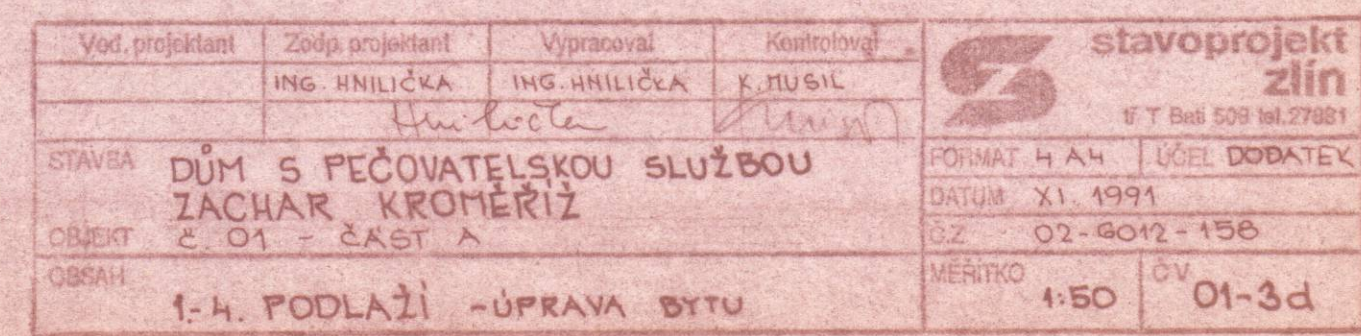 Ved. projektant Zodp. projektant Vypracoval Kontroloval
ING. HNILIČKA ING. HNILIČKA K. MUSIL
Hnilička
stavoprojekt
zlín
tř. T. Bati 508 tel. 27881
STAVBA DŮM S PEČOVATELSKOU SLUŽBOU
ZACHAR KROMĚŘÍŽ
OBJEKT Č. 01 - ČÁST A
OBSAH
1.- 4. PODLAŽÍ - ÚPRAVA BYTU
FORMÁT 4 A4 ÚČEL DODATEK
DATUM XI. 1991
Č.Z. 02-6012-158
MĚŘÍTKO 1:50 Č.V. 01-3d